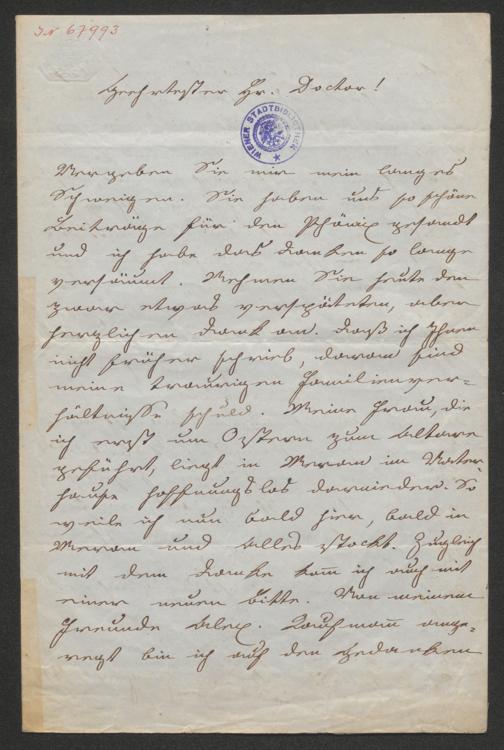 IN 67993
Geehrtester Hr. Doctor!
WIENER STADTBIBLIOTHEK
Vergeben Sie mir mein langes
Schweigen. Sie haben uns so schöne
Beiträge für den Phönix gesandt
und ich habe das Danken so lange
versäumt. Nehmen Sie heute den
zwar etwas verspäteten, aber
herzlichen Dank an. Daß ich Ihnen
nicht früher schrieb, daran sind
meine traurigen Familienver-
hältnisse schuld. Meine Frau, die
ich erst um Ostern zum Altare
geführt, liegt in Meran im Vater-
hause hoffnungslos darnieder. So
weile ich nun bald hier, bald in
Meran und Alles stockt. Zugleich
mit dem Danke kom̄ ich auch mit
einer neuen Bitte. Von meinem
Freunde Alex. Kaufman̄ ange-
regt bin ich auf den Gedanken